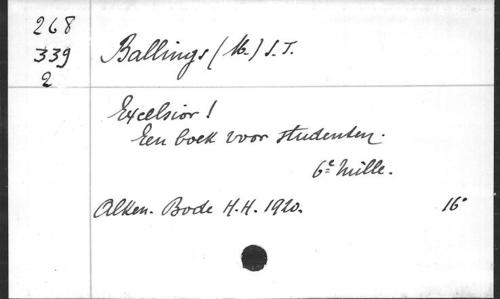 268
339
2
Ballings (M.) S.T.
Excelsior!
Een boek voor studenten.
6e mille.
Alken. Bode H.H. 1920.
16°